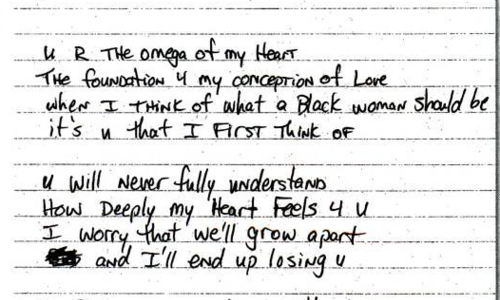 u R THE omega of my Heart
The foundation 4 my conception of Love
when I THINK of what a Black woman should be
it's u that I FIRST Think OF
u will Never fully understand
How Deeply my Heart Feels 4 u
I worry that we'll grow apart
and I'll end up losing u